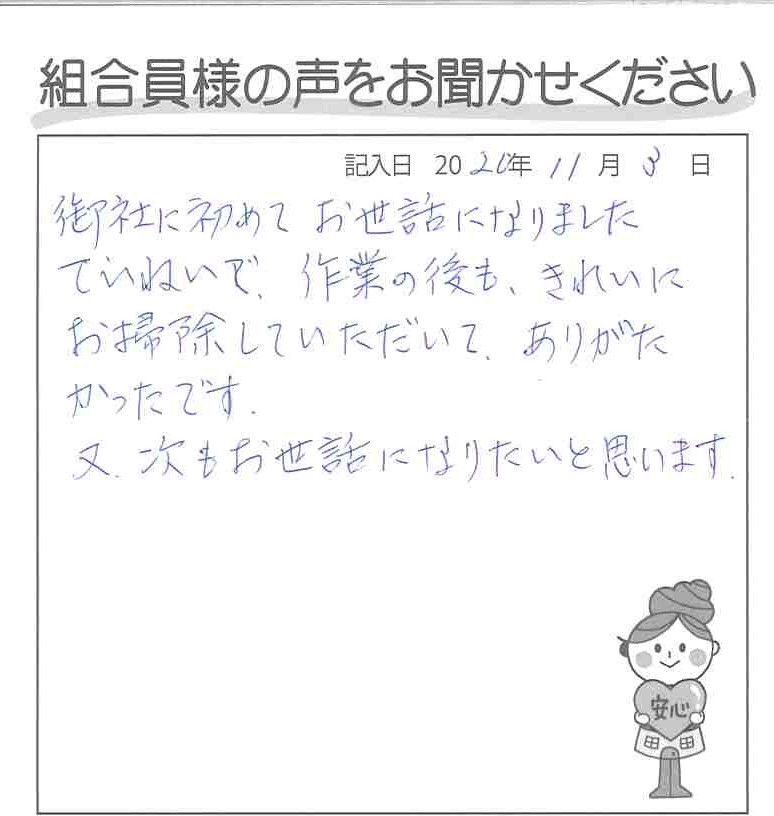 組合員様の声をお聞かせください
記入日 2020年 11月 3日
御社に初めて お世話になりました
ていねいで、作業の後も、きれいに
お掃除していただいて、ありがた
かったです.
又、次もお世話になりたいと思います.
安心